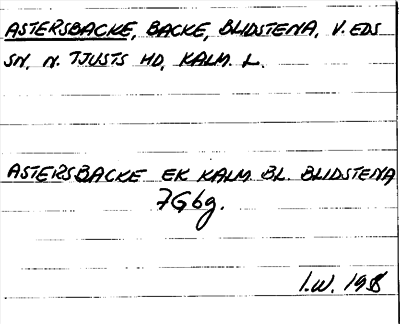 ASTERSBACKE, BACKE, BLIDSTENA, V. EDS
SN, N. TJUSTS HD, KALM. L.
ASTERSBACKE EK KALM BL. BLIDSTENA
7G6g.
I.W.